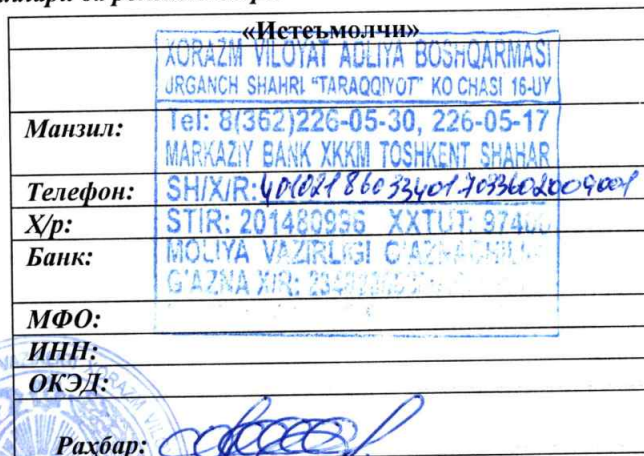 «Истеъмолчи»
XORAZM VILOYAT ADLIYA BOSHQARMASI
URGANCH SHAHRI "TARAQQIYOT" KO'CHASI 16-UY
Манзил:
Tel: 8(362)226-05-30, 226-05-17
MARKAZIY BANK XKKM TOSHKENT SHAHAR
Телефон:
SH/X/R: 401021860334017033602009001
Х/р:
STIR: 201480936 XXTUT:
Банк:
MOLIYA VAZIRLIGI
G'AZNA X/R:
МФО:
ИНН:
ОКЭД:
Раҳбар: